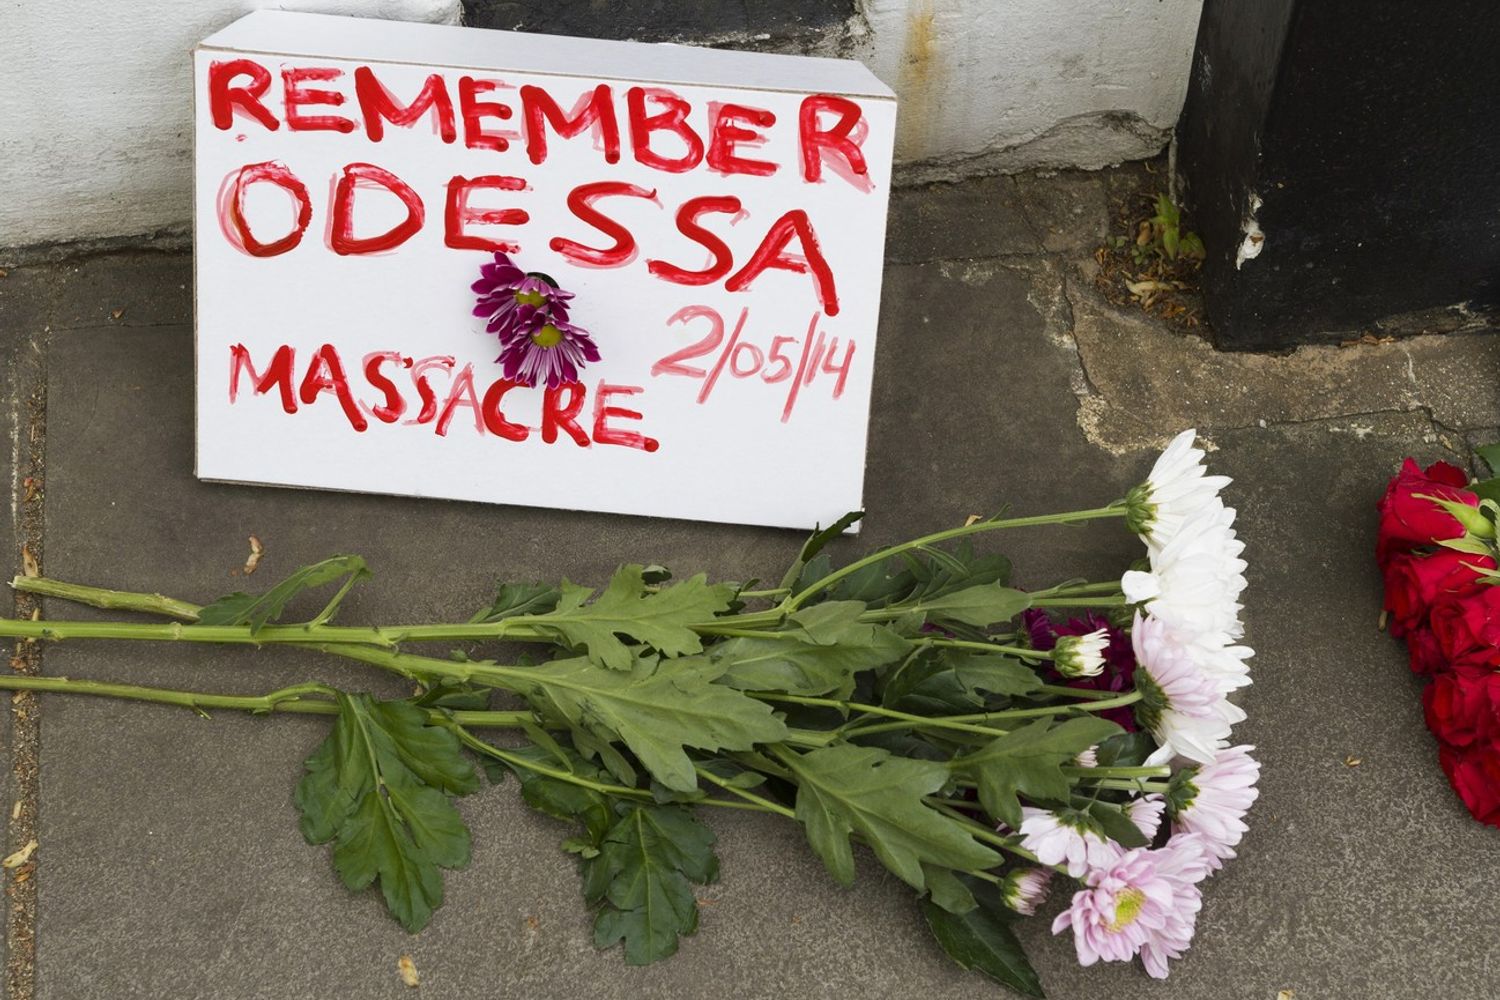 REMEMBER
ODESSA
MASSACRE 2/05/14